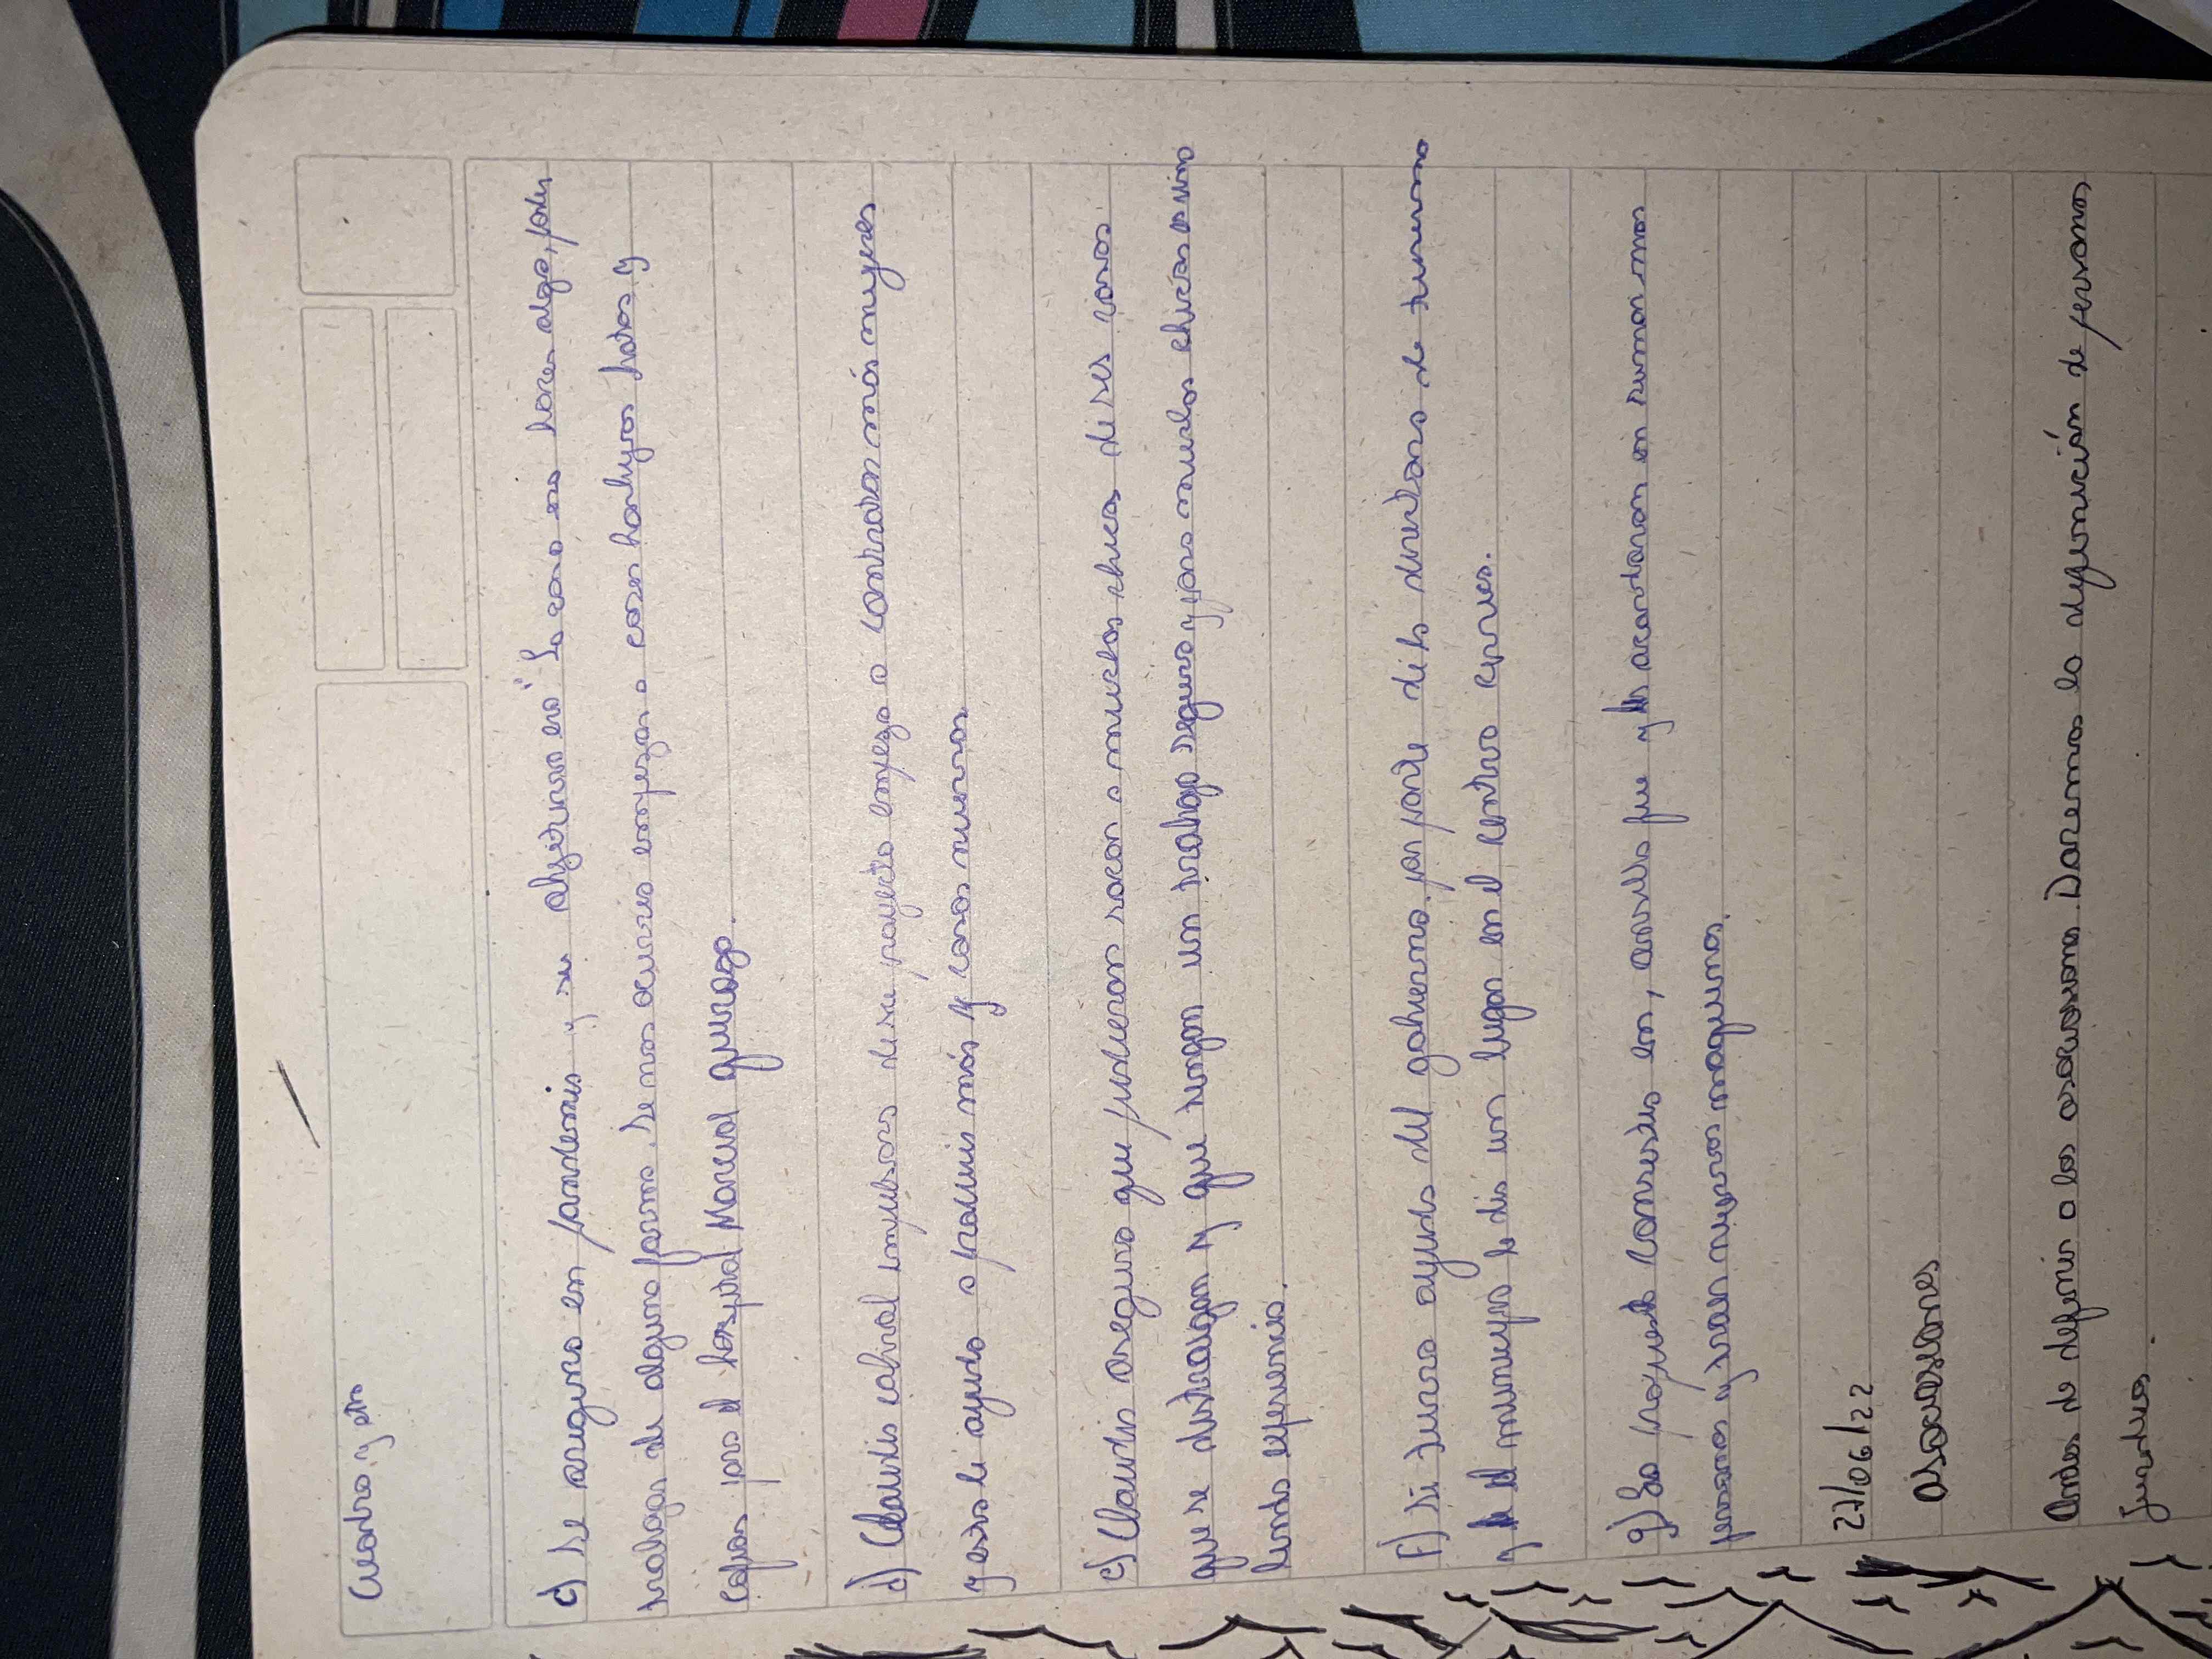 Cuadro y
c) Se aseguro en pandemia y su objetivo era "La casa era hacer algo, poder
trabajar de alguna forma. Se nos ocurrio empezar a coser barbijos batas y
cofias para el hospital Marcial Quiroga.
d) Claudia cabral impulsora de su proyecto empezo a contratar más mujeres
y esto le ayudo a producir más y cosas nuevas.
e) Claudia aseguro que pudieron sacar a muchas chicas de sus casas
que se distraigan y que tengan un trabajo seguro y para muchas chicas es su
linda esperiencia.
F) Si tuvo ayuda del gobierno, por parte de la de turismo
y el municipio le dio un lugar en el centro civico.
g) La propuesta consistia en, fue y acordaron en sumar mas
personas y traer nuevas maquinas.
27/06/22
asociaciones
Antes de definir a las asociaciones Daremos la definición de personas
Juridica.